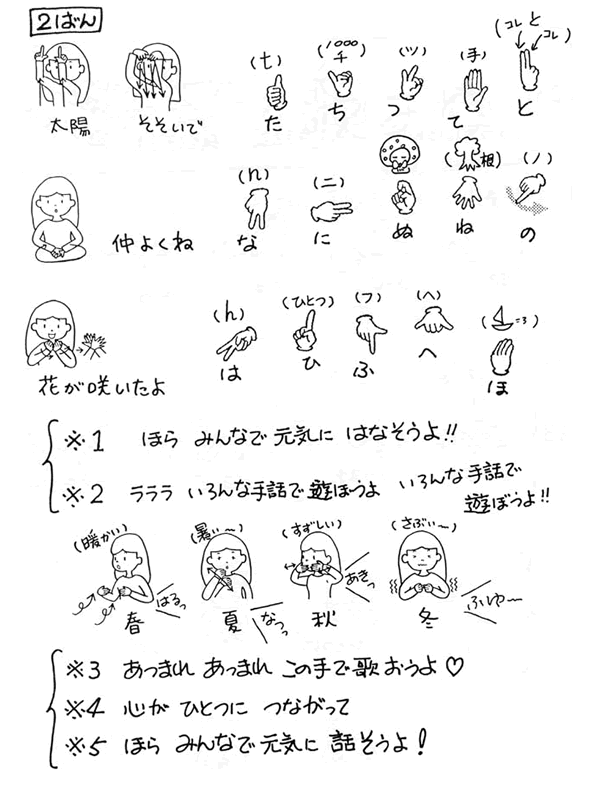 2ばん
(コレとコレ)
(t) (1000千) (ツ) (手)
た ち つ て と
太陽 そそいで
(n) (ニ) (相) (ノ)
な に ぬ ね の
仲よくね
(h) (ひとつ) (フ) (ヘ) (=ろ)
は ひ ふ へ ほ
花が咲いたよ
※1 ほら みんなで 元気に はなそうよ!!
※2 ラララ いろんな手話で 遊ぼうよ いろんな手話で
遊ぼうよ!!
(暖かい) (暑ぃ〜) (すずしい) (さぶぃ〜)
はるっ なつっ あきっ ふゆ〜
春 夏 秋 冬
※3 あつまれ あつまれ この手で歌おうよ♡
※4 心が ひとつに つながって
※5 ほら みんなで 元気に 話そうよ!